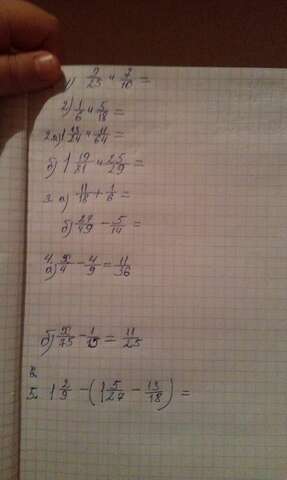 1) 2/25 и 3/10 =
2) 1/6 и 5/18 =
2. а) 1 13/24 и 11/64 =
б) 1 19/21 и 25/29 =
3. а) 11/18 + 1/6 =
б) 27/49 - 5/14 =
4.
а) x/4 - 4/9 = 11/36
б) x/75 - 1/15 = 11/25
5. 1 2/9 - (1 5/27 - 13/18) =